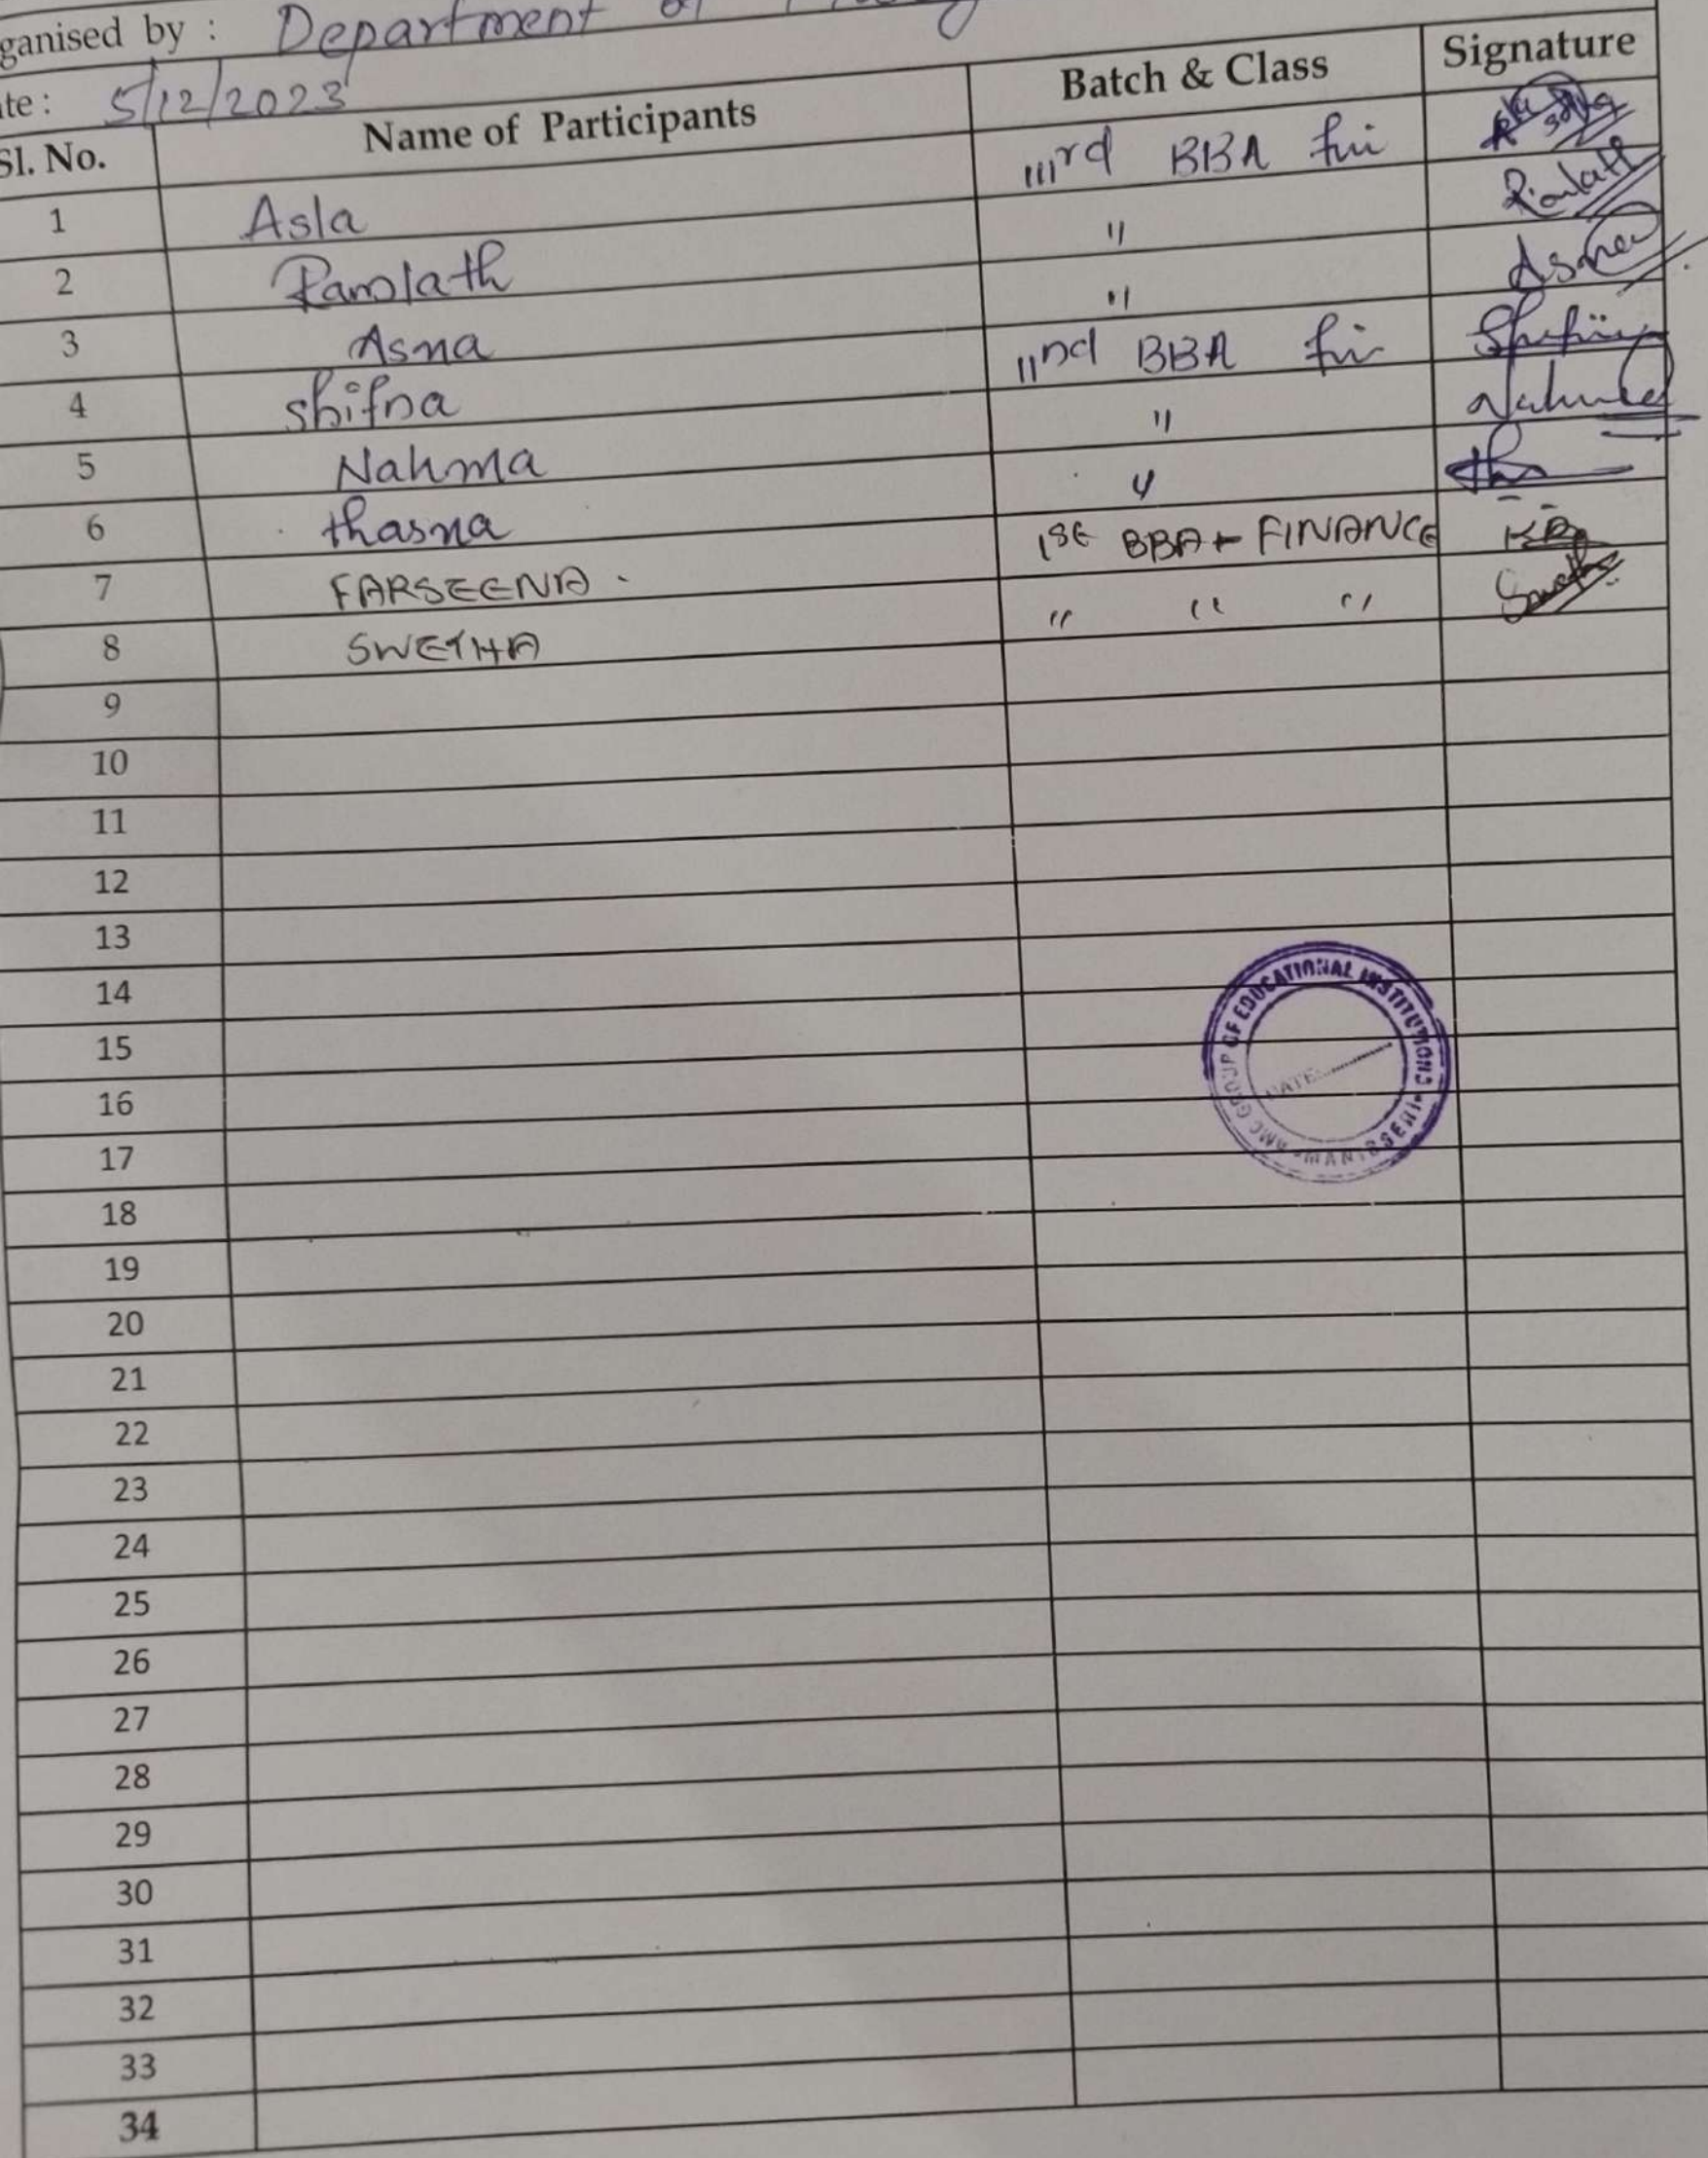 ganised by : Department of
te : 5/12/2023
Sl. No. Name of Participants Batch & Class Signature
1 Asla IIIrd BBA fin
2 Ramlath " Ramlath
3 Asna " Asna
4 Shifna IInd BBA fin
5 Nahma "
6 thasna "
7 FARSEENA. 1st BBA - FINANCE
8 SWETHA " " " Swetha
9
10
11
12
13
14
15
16
17
18
19
20
21
22
23
24
25
26
27
28
29
30
31
32
33
34
GROUP OF EDUCATIONAL INSTITUTIONS
MANISSERI
DATE: